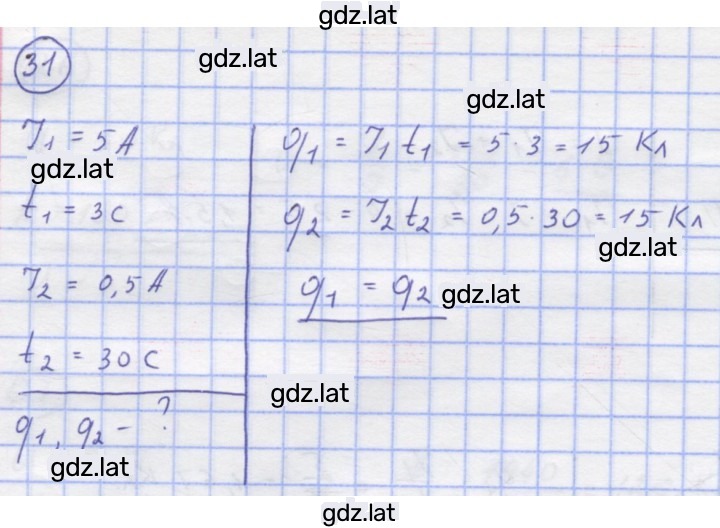 gdz.lat
31
gdz.lat
gdz.lat
I₁ = 5 А
gdz.lat
t₁ = 3 с
I₂ = 0,5 А
t₂ = 30 с
q₁, q₂ - ?
gdz.lat
q₁ = I₁ t₁ = 5 · 3 = 15 Кл
q₂ = I₂ t₂ = 0,5 · 30 = 15 Кл
gdz.lat
q₁ = q₂
gdz.lat
gdz.lat
gdz.lat